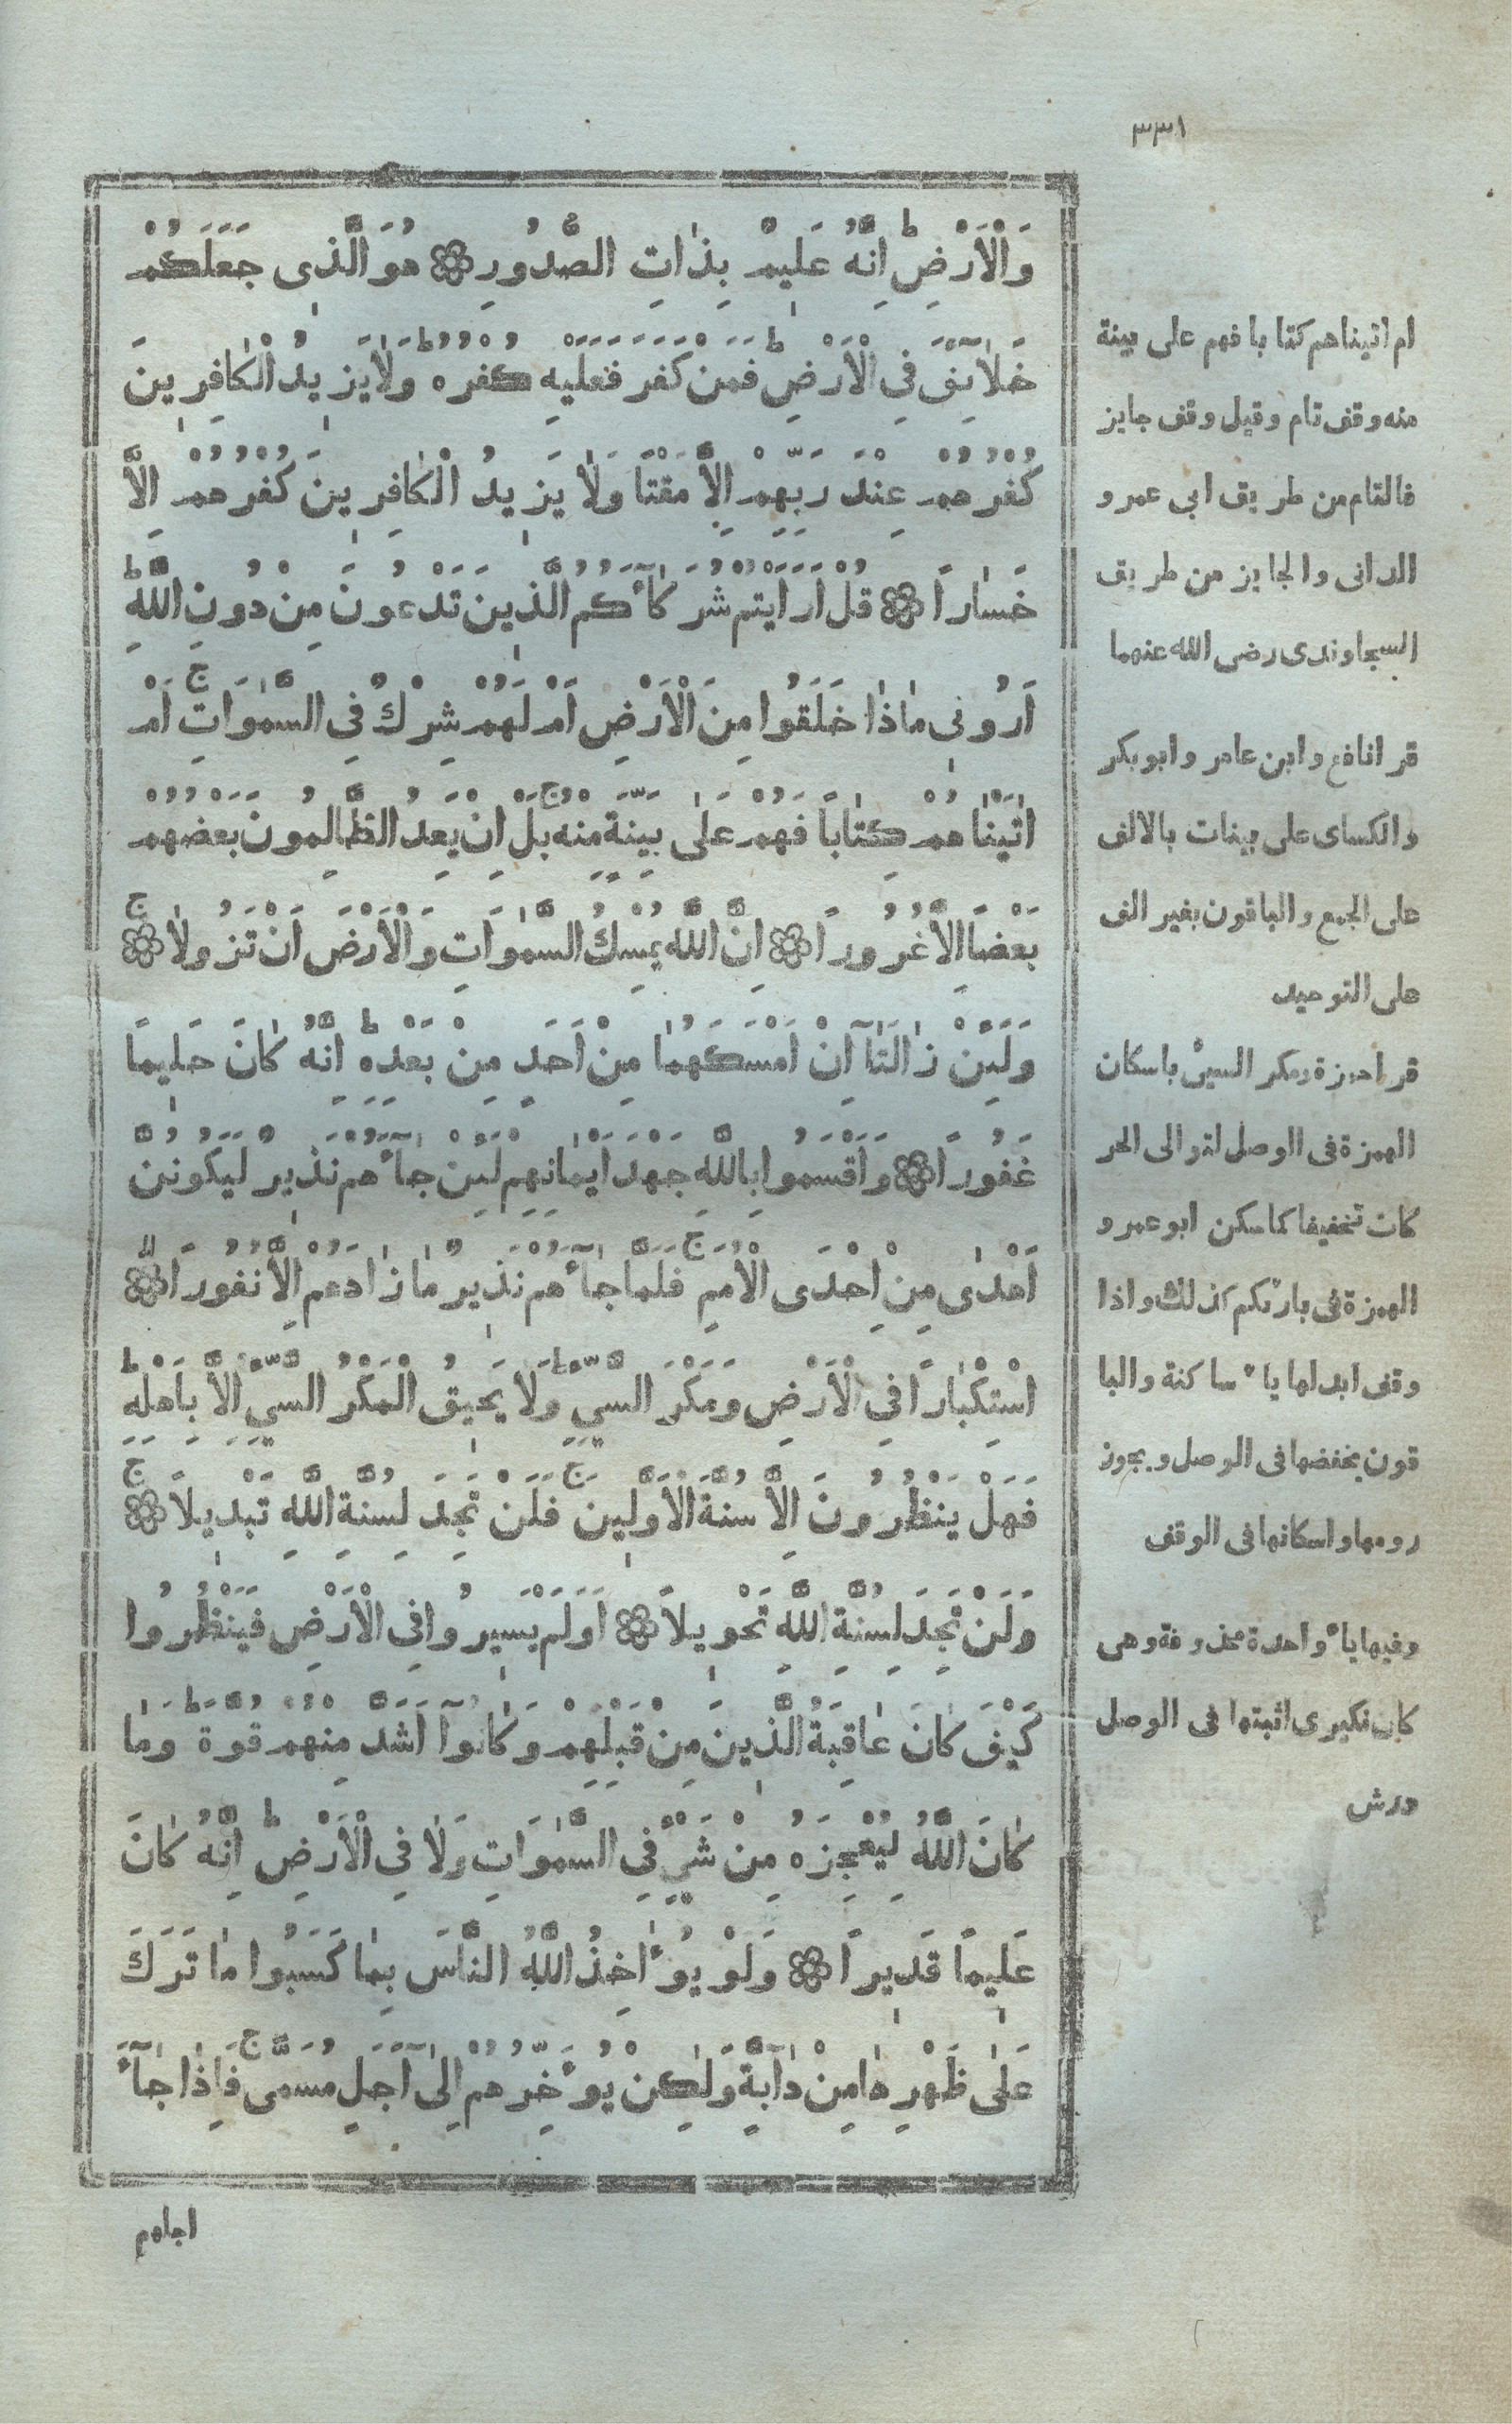 ٣٣١
وَالْاَرْضِ ط اِنَّهُ عَلِيمٌ بِذَاتِ الصُّدُورِ ۞ هُوَ الَّذِى جَعَلَكُمْ
خَلَآئِفَ فِى الْاَرْضِ ط فَمَنْ كَفَرَ فَعَلَيْهِ كُفْرُهُ ط وَلَا يَزِيدُ الْكَافِرِينَ
كُفْرُهُمْ عِنْدَ رَبِّهِمْ اِلَّا مَقْتًا وَلَا يَزِيدُ الْكَافِرِينَ كُفْرُهُمْ اِلَّا
خَسَارًا ۞ قُلْ اَرَاَيْتُمْ شُرَكَآءَكُمُ الَّذِينَ تَدْعُونَ مِنْ دُونِ اللَّهِ ط
اَرُونِى مَاذَا خَلَقُوا مِنَ الْاَرْضِ اَمْ لَهُمْ شِرْكٌ فِى السَّمٰوَاتِ ج اَمْ
اٰتَيْنَاهُمْ كِتَابًا فَهُمْ عَلٰى بَيِّنَةٍ مِنْهُ ج بَلْ اِنْ يَعِدُ الظَّالِمُونَ بَعْضُهُمْ
بَعْضًا اِلَّا غُرُورًا ۞ اِنَّ اللَّهَ يُمْسِكُ السَّمٰوَاتِ وَالْاَرْضَ اَنْ تَزُولَا ج ۞
وَلَئِنْ زَالَتَآ اِنْ اَمْسَكَهُمَا مِنْ اَحَدٍ مِنْ بَعْدِهِ ط اِنَّهُ كَانَ حَلِيمًا
غَفُورًا ۞ وَاَقْسَمُوا بِاللَّهِ جَهْدَ اَيْمَانِهِمْ لَئِنْ جَآءَهُمْ نَذِيرٌ لَيَكُونُنَّ
اَهْدٰى مِنْ اِحْدَى الْاُمَمِ ج فَلَمَّا جَآءَهُمْ نَذِيرٌ مَا زَادَهُمْ اِلَّا نُفُورًا لا ۞
اسْتِكْبَارًا فِى الْاَرْضِ وَمَكْرَ السَّيِّئِ ط وَلَا يَحِيقُ الْمَكْرُ السَّيِّئُ اِلَّا بِاَهْلِهِ ط
فَهَلْ يَنْظُرُونَ اِلَّا سُنَّةَ الْاَوَّلِينَ ج فَلَنْ تَجِدَ لِسُنَّةِ اللَّهِ تَبْدِيلًا ج ۞
وَلَنْ تَجِدَ لِسُنَّةِ اللَّهِ تَحْوِيلًا ۞ اَوَلَمْ يَسِيرُوا فِى الْاَرْضِ فَيَنْظُرُوا
كَيْفَ كَانَ عَاقِبَةُ الَّذِينَ مِنْ قَبْلِهِمْ وَكَانُوآ اَشَدَّ مِنْهُمْ قُوَّةً ط وَمَا
كَانَ اللَّهُ لِيُعْجِزَهُ مِنْ شَىْءٍ فِى السَّمٰوَاتِ وَلَا فِى الْاَرْضِ ط اِنَّهُ كَانَ
عَلِيمًا قَدِيرًا ۞ وَلَوْ يُؤَاخِذُ اللَّهُ النَّاسَ بِمَا كَسَبُوا مَا تَرَكَ
عَلٰى ظَهْرِهَا مِنْ دَآبَّةٍ وَلٰكِنْ يُؤَخِّرُهُمْ اِلٰىٓ اَجَلٍ مُسَمًّى ج فَاِذَا جَآءَ
اجلهم
ام اتيناهم كتابا فهم على بينة
منه وقف تام وقيل وقف جايز
فالتام من طريق ابى عمرو
الدانى والجايز من طريق
السجاوندى رضى الله عنهما
قرا نافع وابن عامر وابو بكر
والكساى على بينات بالالف
على الجمع والباقون بغير الف
على التوحيد
قرا حمزة ومكر السيئ باسكان
الهمزة فى الوصل لتوالى الحر
كات تخفيفا كما سكن ابو عمرو
الهمزة فى بارئكم كذلك واذا
وقف ابدلها ياء ساكنة والبا
قون بخفضها فى الوصل ويجوز
رومها واسكانها فى الوقف
وفيها ياء واحدة محذوفة وهى
كان نكيرى اثبتها فى الوصل
ورش